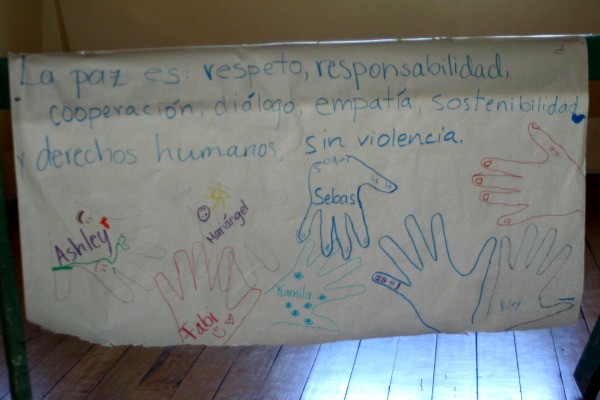 La paz es: respeto, responsabilidad,
cooperación, diálogo, empatía, sostenibilidad
y derechos humanos, sin violencia.
Sebas
Ashley
Mariángel
Kamila
Fabi